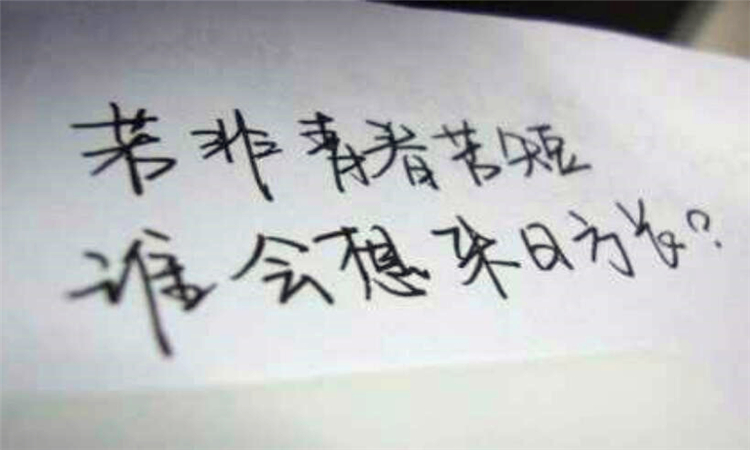 若非青春苦短
谁会想来日方长?